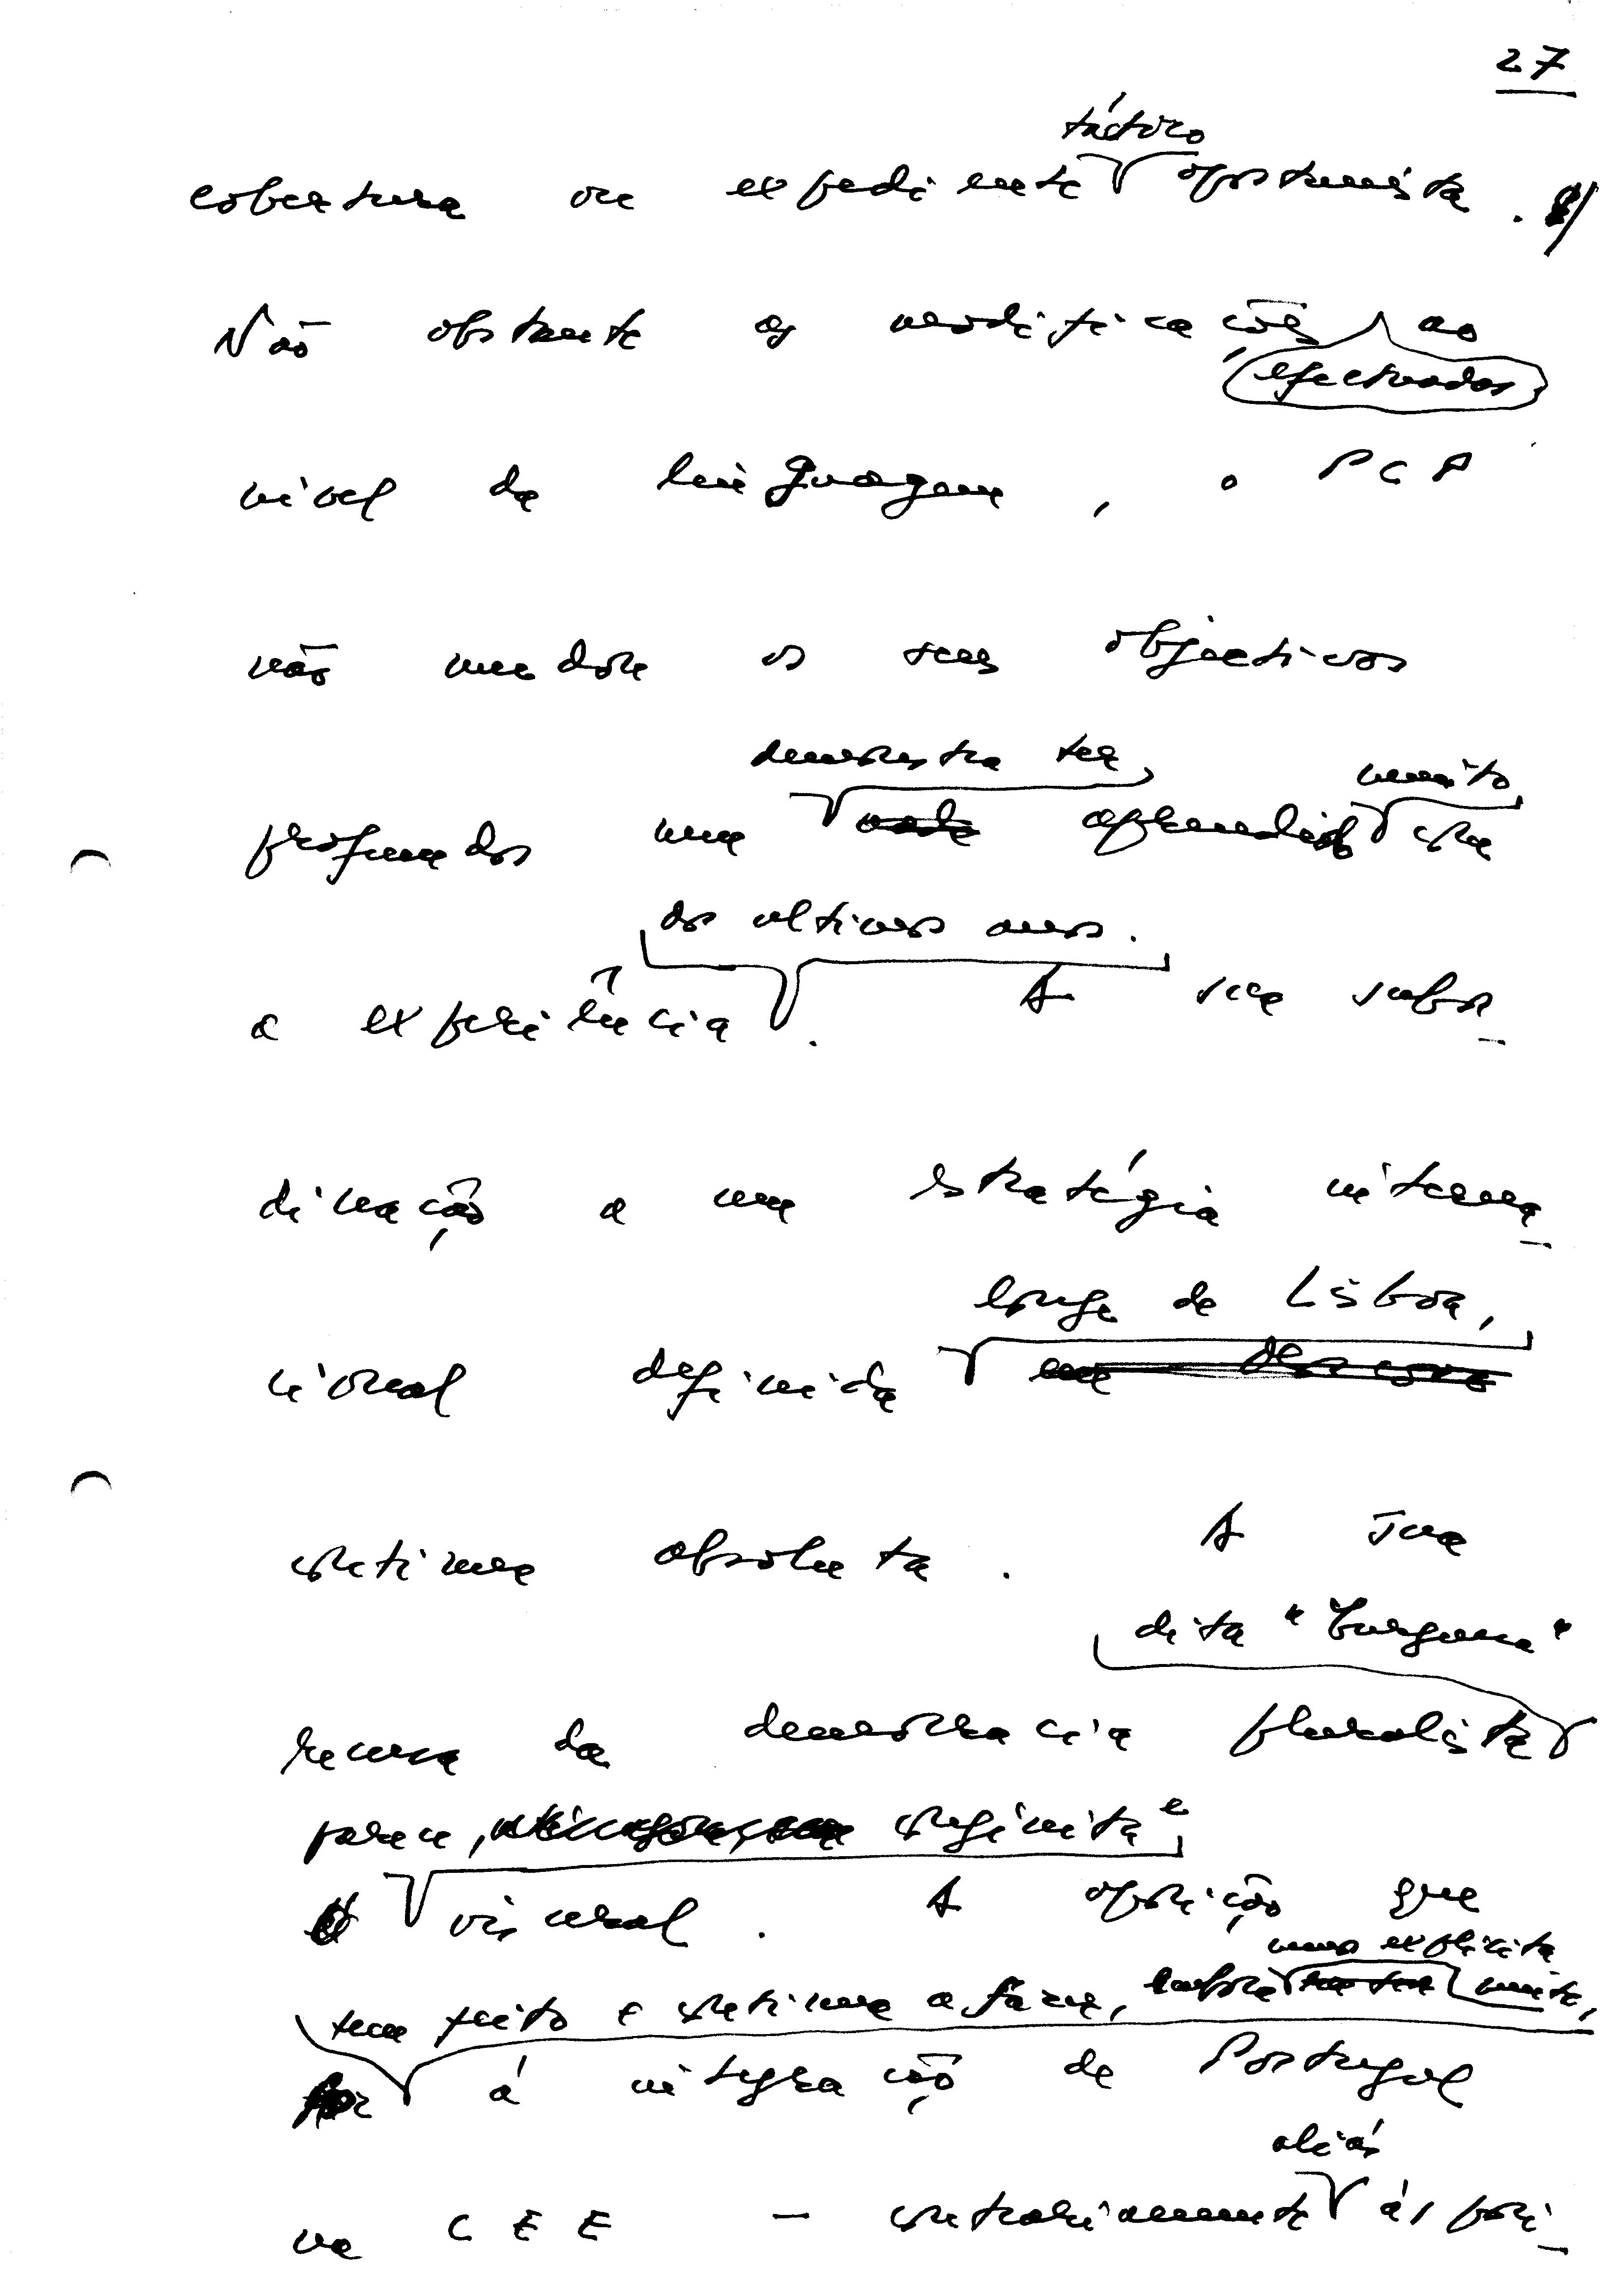 27
táctico
cobertura ou expediente oportunista.
Não obstante as modificações ao
efectuadas
nível da linguagem, o PCP
não mudou os seus objectivos
demonstra ter muito
profundos nem nada aprendido com
dos ultimos anos.
a experiência. A sua subor-
dinação a uma estratégia interna-
longe de Lisboa,
cional definida
continua absoluta. A sua
dita "burguesa"
recusa da democracia pluralista
parece, congénita e
é visceral. A oposição que
menos explicita
tem feito e continua a fazer, embora mente,
à integração de Portugal
aliás
na CEE - contrariamente às posi-